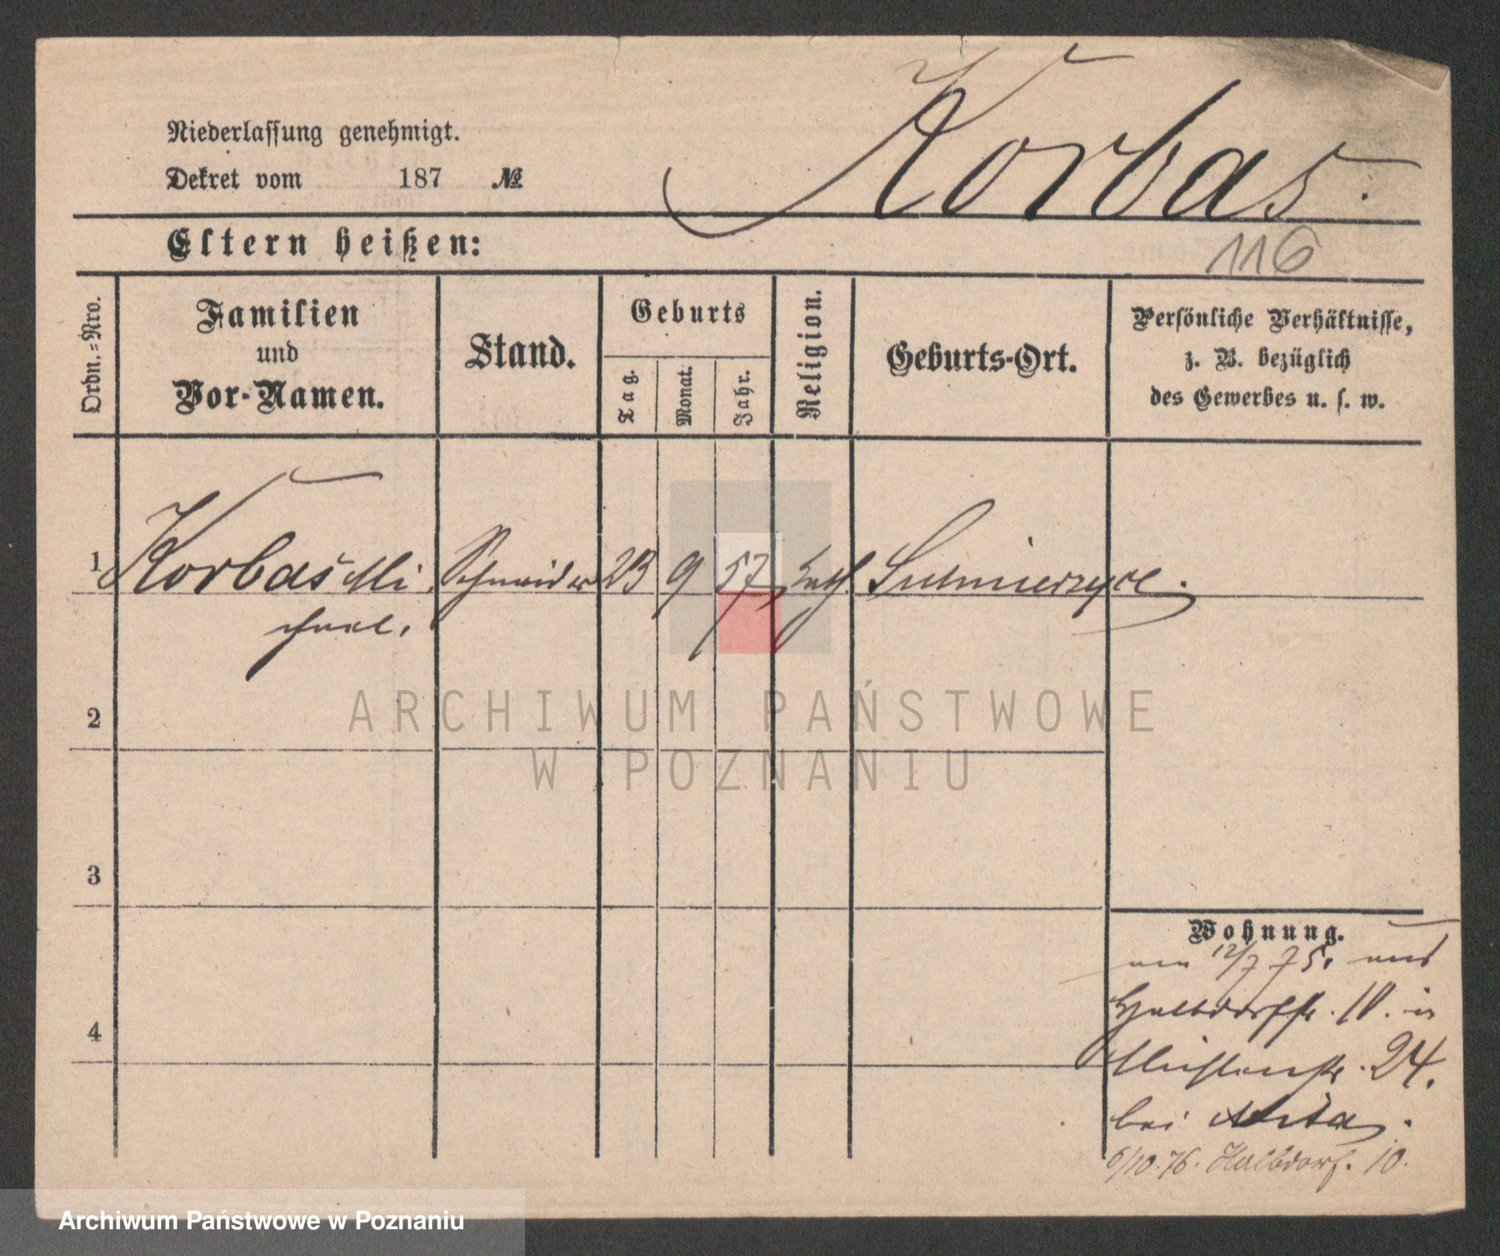 Korbas.
Niederlassung genehmigt.
Dekret vom 187 №
Eltern heißen:
116
Ordn.-Nro.
Familien
und
Vor-Namen.
Stand.
Geburts
Tag.
Monat.
Jahr.
Religion.
Geburts-Ort.
Persönliche Verhältnisse,
z. B. bezüglich
des Gewerbes u. s. w.
1 Korbas Mi Schneider 23 9 57 kath. Sulmierzyce.
chael.
2
3
4
Wohnung.
12/7 75.
Halbdorfstr. 10. in
Mühlenstr. 24.
bei
6/10. 76. Halbdorf. 10.
ARCHIWUM PAŃSTWOWE
W POZNANIU
Archiwum Państwowe w Poznaniu